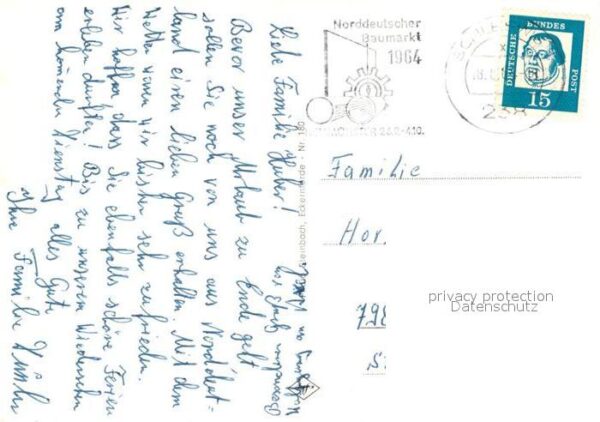 Norddeutscher
Baumarkt
1964
DEUTSCHE
BUNDES
POST
15
238
Liebe Familie Huber!
Bevor unser Urlaub zu Ende geht
sollen Sie noch von uns aus Norddeut-
land einen lieben Gruß erhalten. Mit dem
Wetter waren wir bisher sehr zufrieden.
Wir hoffen, dass Sie ebenfalls schöne Ferien
erleben durften! Bis zu unserem Wiedersehen
am kommenden Dienstag alles Gute
Ihre Familie
Familie
Hor.
798
S.
Steinbach, Eckernförde - Nr. 180
privacy protection
Datenschutz